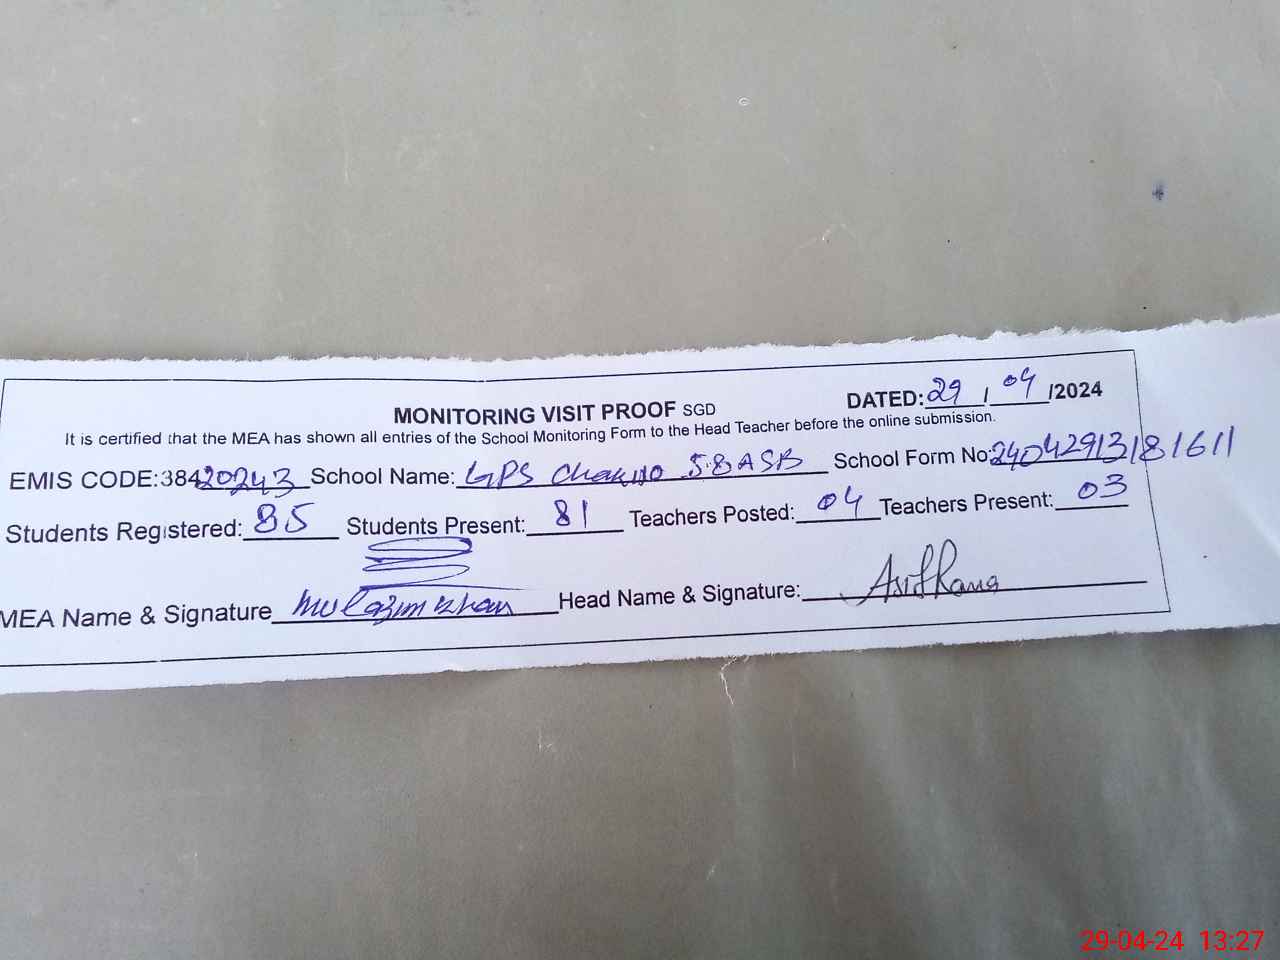 MONITORING VISIT PROOF SGD DATED: 29/04/2024
It is certified that the MEA has shown all entries of the School Monitoring Form to the Head Teacher before the online submission.
EMIS CODE:38420243 School Name: GPS Chak No 58 ASB School Form No: 24042913181611
Students Registered: 85 Students Present: 81 Teachers Posted: 04 Teachers Present: 03
MEA Name & Signature Khan Head Name & Signature: Asif Rana
29-04-24 13:27